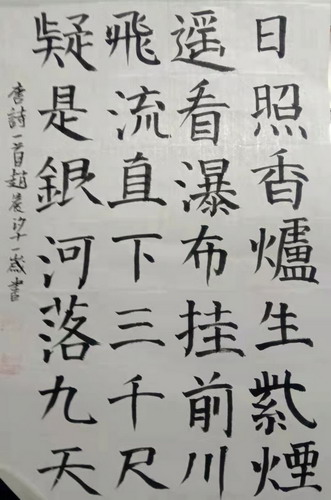 日照香爐生紫煙
遥看瀑布挂前川
飛流直下三千尺
疑是銀河落九天
唐詩一首趙晨汐十一歲書